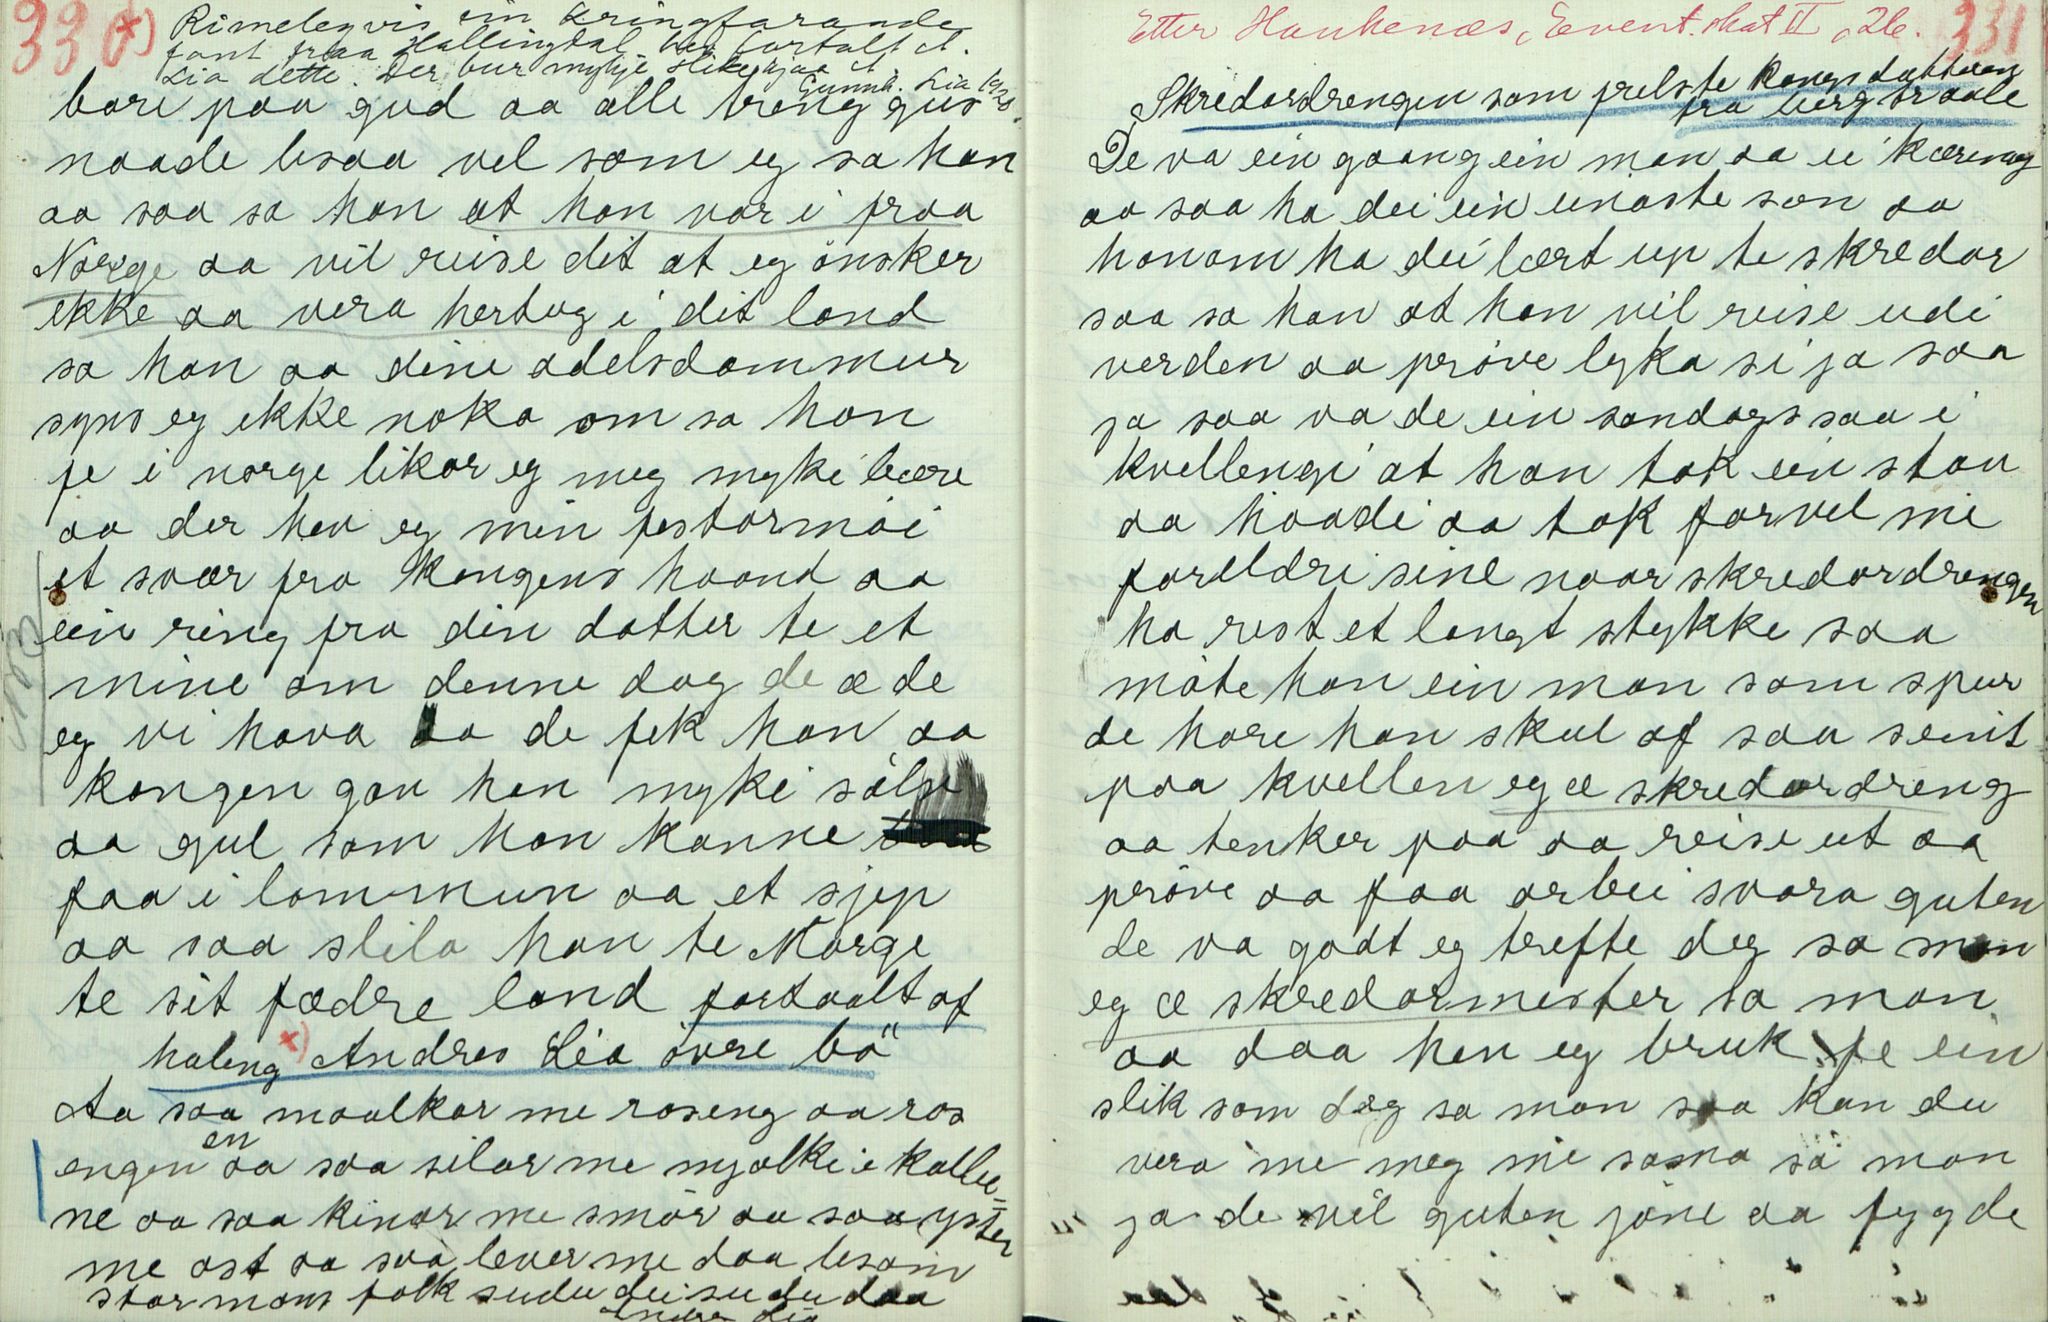 330
x) Rimelegvis ein kringfarande
fant fraa Hallingdal hev fortalt A.
Lia dette. Der bur mykje slike hjaa A.
Gunnh. Lia 1920.
bare paa gud aa alle treng gus
naade lesaa vel som eg sa han
aa saa sa han at han var i fraa
Norge aa vil reise dit at eg önsker
ekke aa vera hertug i dit land
sa han aa dine adelsdammur
syns eg ikke noka om sa han
fe i norge likar eg meg myki bære
aa der hev eg min festarmöi
et svær fra Kongens haand aa
ein ring fra din datter te et
mine om denne dag de æ de
eg vi hava aa de fek han aa
kongen gav han myki sölv
aa gul som han kanne
faa i lommun aa et sjep
aa saa stila han te Norge
te sit fædre land fortaalt af
haling x) Andres Lia övre bö"
Aa saa maalkar me roseng aa ros
engen en aa saa silar me mjölki i kolle-
ne aa saa kinar me smör aa saa yster
me ost aa saa lever me daa lesom
stormans folk sudu dei su du daa
Andres Lia
Etter Haukenæs, Event. skat II, 26.
331
Skredardrengen som frelste kongsdatteren
fra berg traale
De va ein gaang ein man aa ei kæring
aa saa ha dei ein einaste søn aa
honom ha dei lært up te skredar
saa sa han at han vil reise udi
verden aa pröve lyka si ja saa
ja saa va de ein søndags saa i
kvellengi at han tok ein stav
aa haadi aa tok farvel mi
foreldri sine naar skredardrengen
ha rest et langt stykke saa
möte han ein man som spur
de hore han skul af saa seint
paa kvellen eg æ skredardreng
aa tenker paa aa reise ut aa
pröve aa faa arbei svara guten
de va godt eg trefte deg sa man
eg æ skredarmester sa man
aa daa hev eg bruk fe ein
slik som deg sa man saa kan du
vera me meg mi sama sa man
ja de vil guten jöre aa fygde